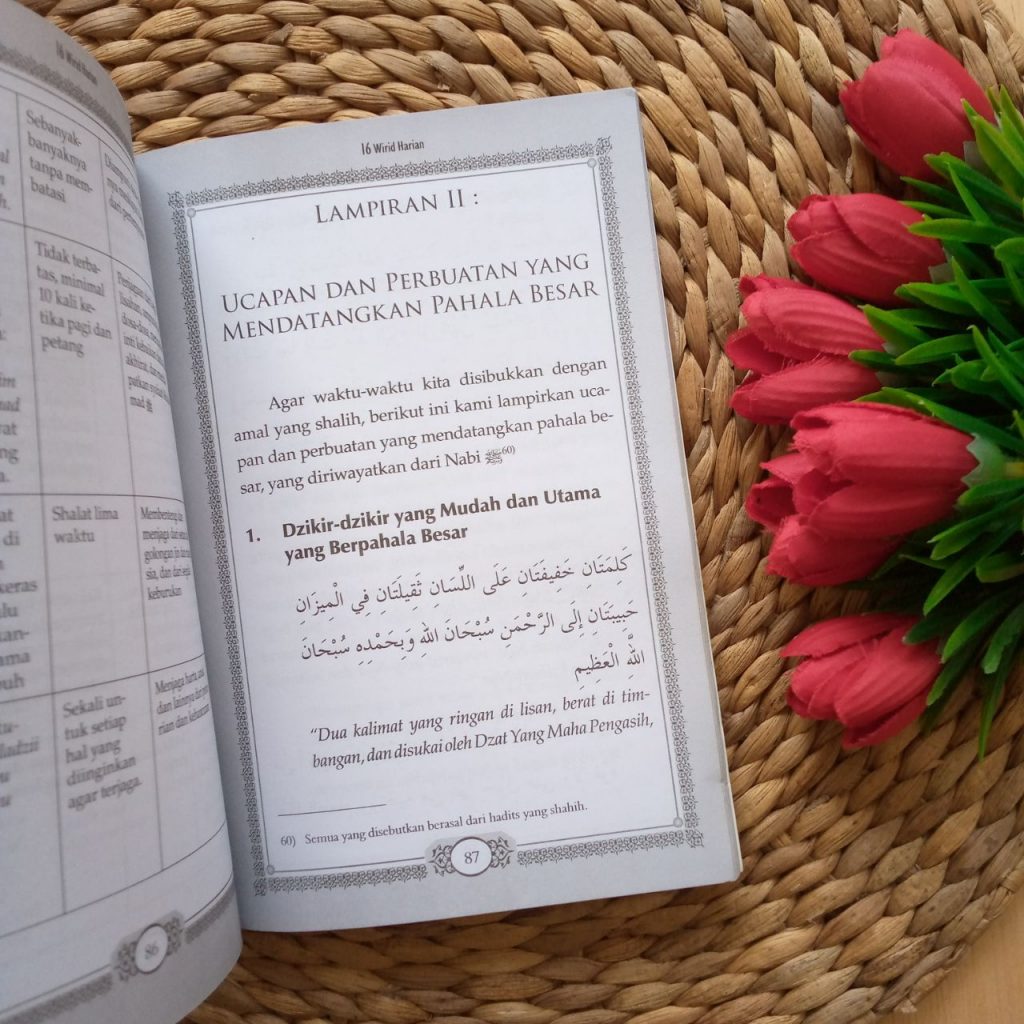 16 Wirid Harian
Sebanyak-
banyaknya
tanpa mem-
batasi
Tidak terba-
tas, minimal
10 kali ke-
tika pagi dan
petang
Shalat lima
waktu
Membentengi dan
menjaga dari
golongan jin dan
sia, dan dari segi
keburukan
Sekali un-
tuk setiap
hal yang
diinginkan
agar terjaga.
Menjaga harta,
86
16 Wirid Harian
LAMPIRAN II :
UCAPAN DAN PERBUATAN YANG
MENDATANGKAN PAHALA BESAR
Agar waktu-waktu kita disibukkan dengan
amal yang shalih, berikut ini kami lampirkan uca-
pan dan perbuatan yang mendatangkan pahala be-
sar, yang diriwayatkan dari Nabi ﷺ60)
1. Dzikir-dzikir yang Mudah dan Utama
yang Berpahala Besar
كَلِمَتَانِ خَفِيفَتَانِ عَلَى اللِّسَانِ ثَقِيلَتَانِ فِي الْمِيزَانِ
حَبِيبَتَانِ إِلَى الرَّحْمَنِ سُبْحَانَ اللهِ وَبِحَمْدِهِ سُبْحَانَ
اللهِ الْعَظِيمِ
“Dua kalimat yang ringan di lisan, berat di tim-
bangan, dan disukai oleh Dzat Yang Maha Pengasih,
60) Semua yang disebutkan berasal dari hadits yang shahih.
87